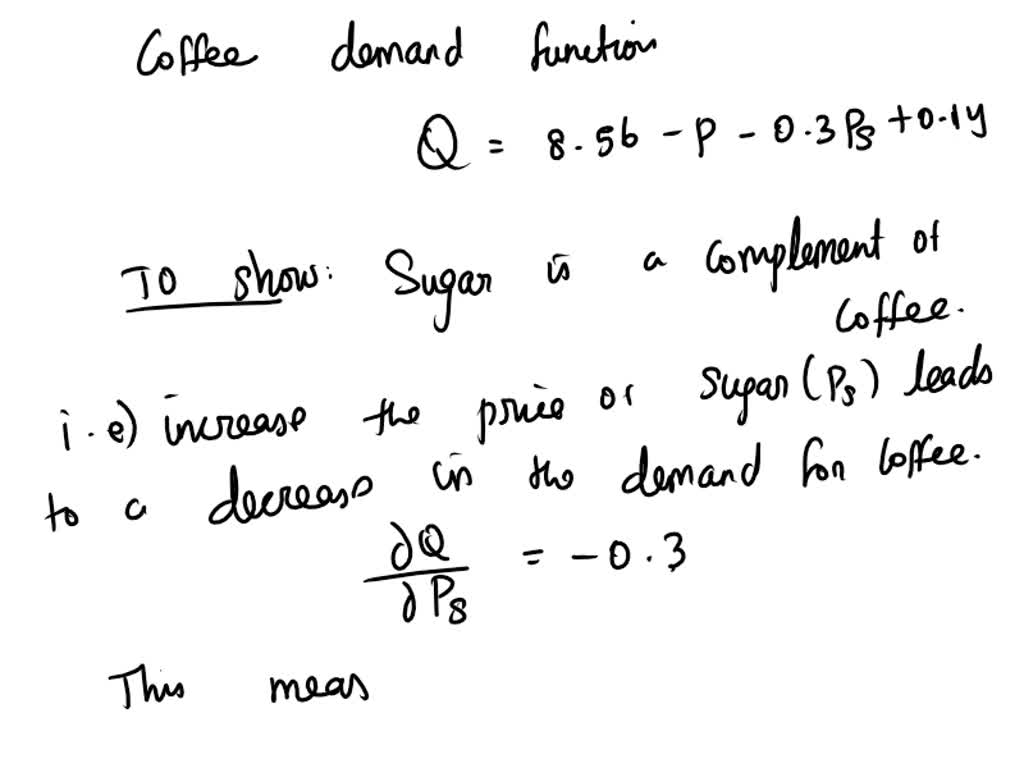 Coffee demand function
Q = 8.56 - P - 0.3Ps + 0.1y
TO show: Sugar is a complement of
coffee.
i.e) increase the price of sugar (Ps) leads
to a decrease in the demand for coffee.
∂Q/∂Ps = -0.3
This meas